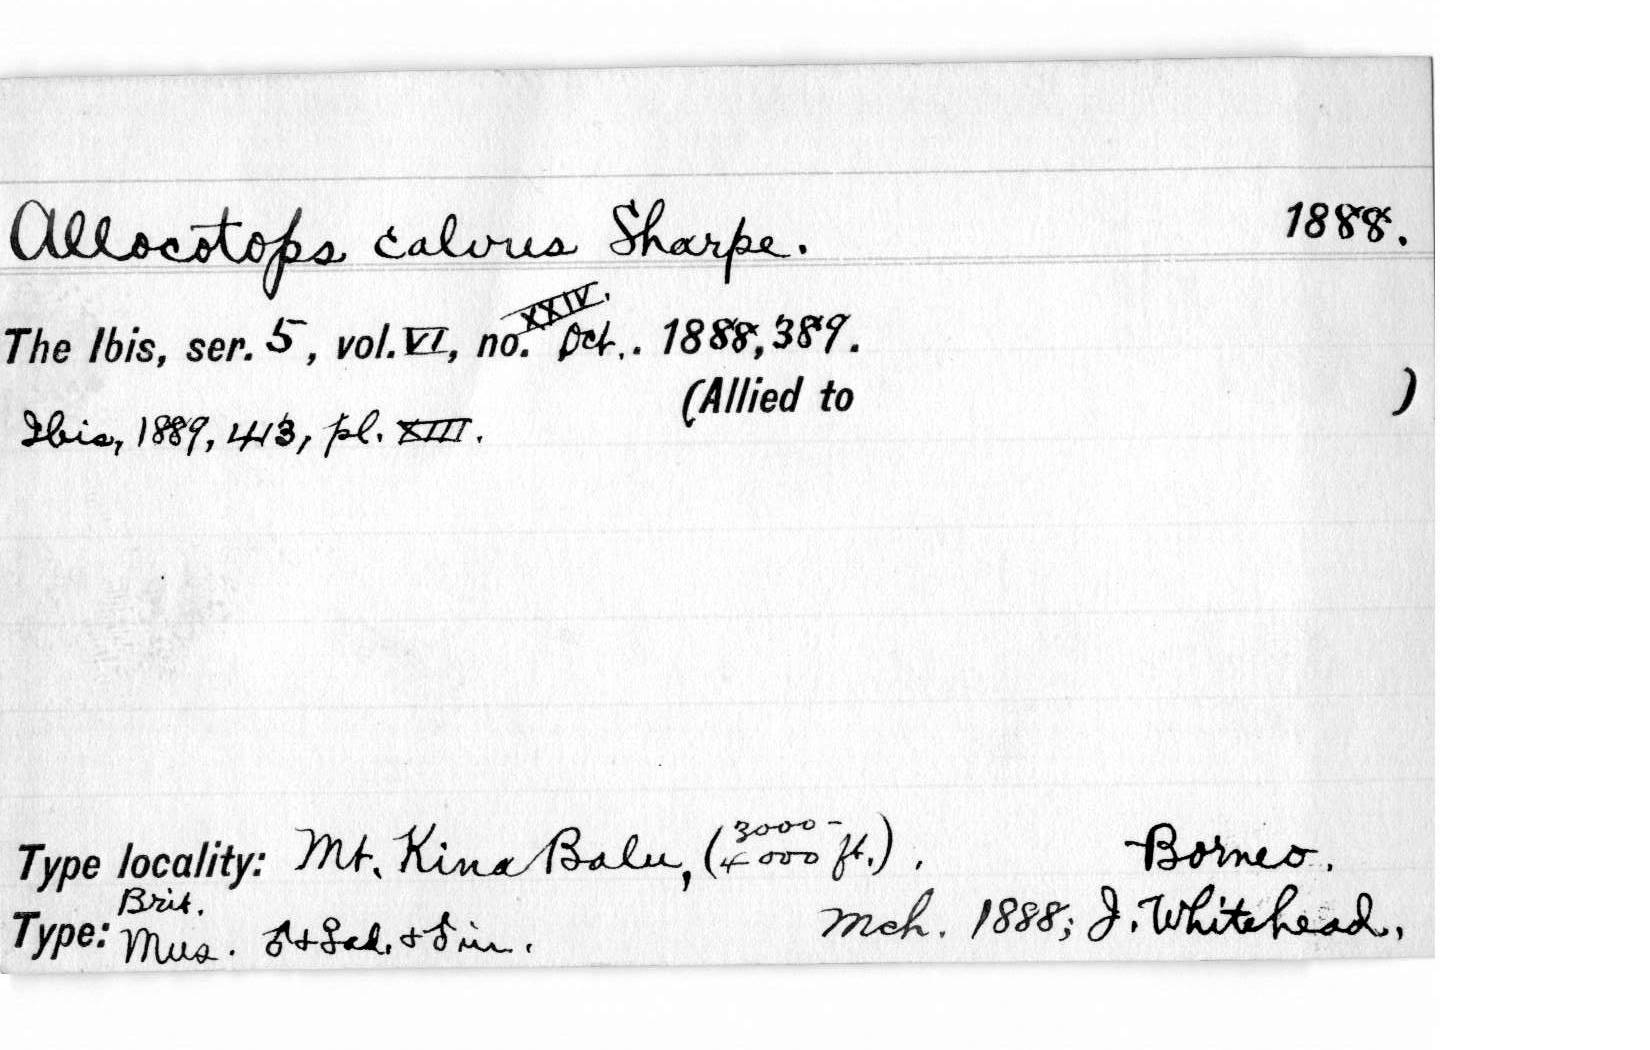 Allocotops calvus Sharpe. 1888.
The Ibis, ser. 5, vol. VI, no. XXIV. Oct.. 1888, 389.
(Allied to )
Ibis, 1889, 413, pl. XIII.
Type locality: Mt. Kina Balu, (3000-4000 ft.). Borneo.
Type: Brit. Mus. Mch. 1888; J. Whitehead.